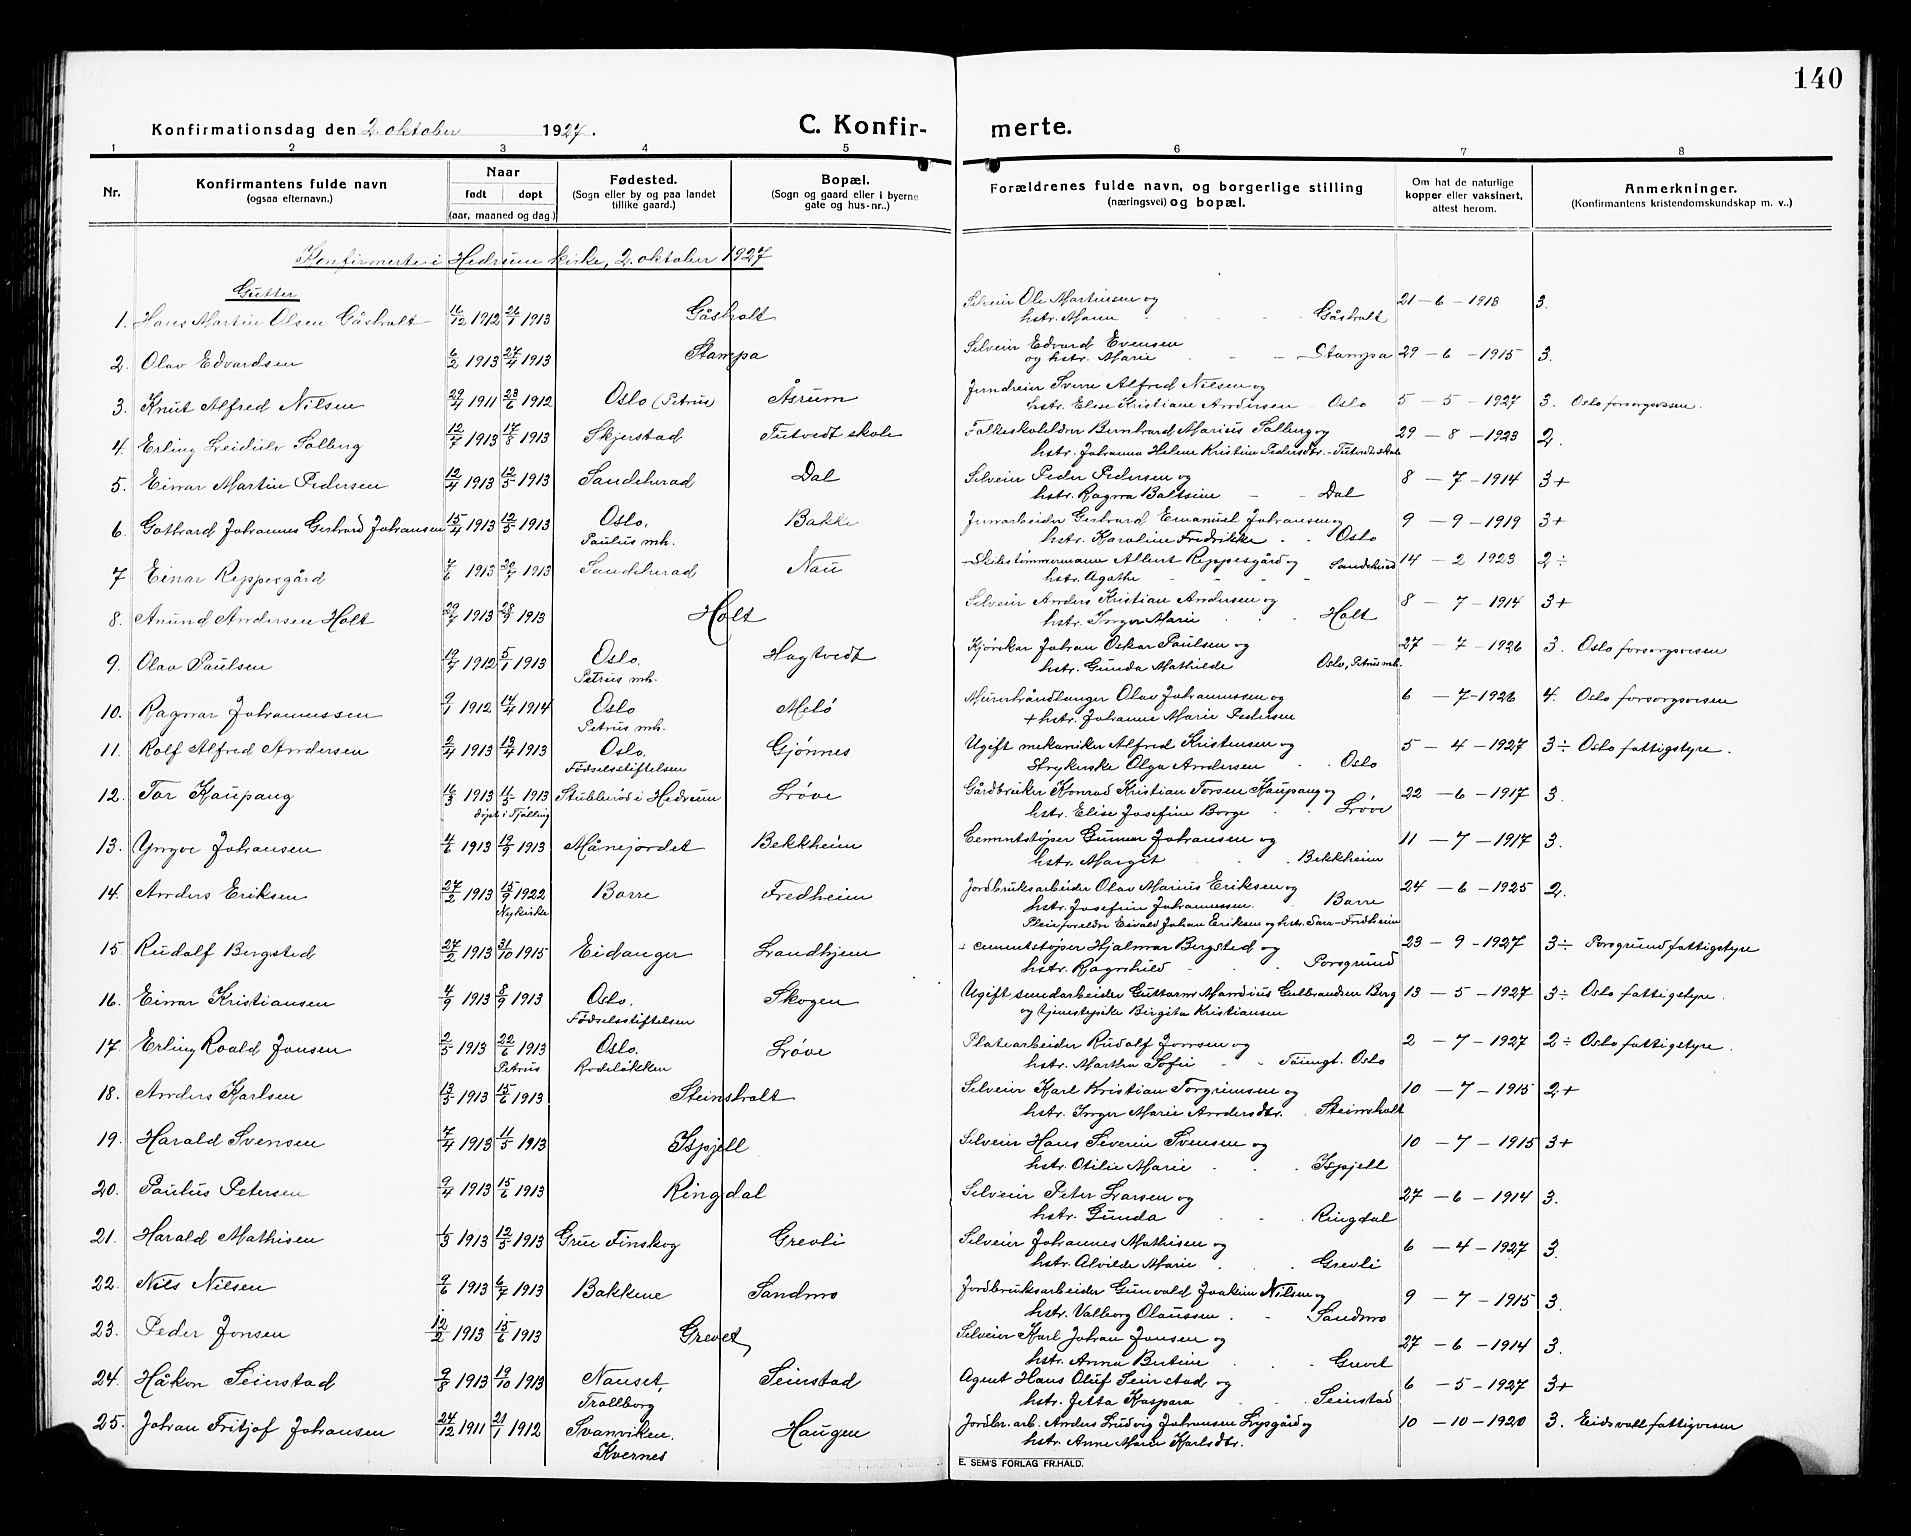 140
Konfirmationsdag den 2. oktober 1927. C. Konfir- merte.
1 2 3 4 5 6 7 8
Nr. Konfirmantens fulde navn (ogsaa efternavn.) Naar født døpt (aar, maaned og dag.) Fødested. (Sogn eller by og paa landet tillike gaard.) Bopæl. (Sogn og gaard eller i byerne gate og hus-nr..) Forældrenes fulde navn, og borgerlige stilling (næringsvei) og bopæl. Om hat de naturlige kopper eller vaksinert, attest herom. Anmerkninger. (Konfirmantens kristendomskundskap m. v..)
Konfirmerte i Hedrum kirke, 2. oktober 1927
Gutter
1. Hans Martin Olsen Gåsholt 16/12 1912 26/1 1913 Gåsholt Selveier Ole Martinsen og 21-6-1913 3.
hstr. Maren - - - Gåsholt
2. Olav Edvardsen 6/2 1913 27/4 1913 Stampa Selveier Edvard Evensen 29-6-1915 3.
og hstr. Marie - - - Stampa
3. Knut Alfred Nilsen 29/4 1911 23/6 1912 Oslo (Petrus) Åsrum Sverre Alfred Nilsen og 5-5-1927 3. Oslo forsorgsvesen.
hstr. Elise Kristiane Andersen - Oslo
4. Erling Leidulv Solberg 12/7 1913 17/8 1913 Skjerstad Tutvedt skole Folkeskolelærer Bernhard Marius Solberg og 29-8-1923 2.
hstr. Johanna Helene Kristine Pedersdtr. - Tutvedt skole
5. Einar Martin Pedersen 12/4 1913 12/5 1913 Sandeherad Dal Selveier Peder Pedersen og 8-7-1914 3+
hstr. Ragna Baltsine - - Dal
6. Gothard Johannes Gerhard Johansen 15/4 1913 12/5 1913 Oslo. Bakke Jernarbeider Gerhard Emanuel Johansen og 9-9-1919 3+
Paulus mh. hstr. Karoline Fredrikke . . Oslo
7 Einar Reppesgård 7/6 1913 20/7 1913 Sandeherad Nau Skibstømmermann Albert Reppesgård og Sandeherad 14-2 1923 2÷
hstr. Agathe - - - -
8. Anund Andersen Holt 29/7 1913 28/9 1913 Holt Selveier Anders Kristian Andersen og 8-7-1914 3+
hstr. Inger Marie . . . Holt
9. Olav Paulsen 19/7 1912 5/1 1913 Oslo. Hagtvedt Kjørekar Johan Oskar Paulsen og 27-7-1926 3. Oslo forsorgsvesen
Petrus mh. hstr. Gunda Mathilde Oslo, Petrus mh.
10. Ragnar Johannessen 9/1 1912 14/4 1914 Oslo Melø Murerhåndlanger Olav Johannessen og 6-7-1926 4. Oslo forsorgsvesen
Petrus mh. + hstr. Johanne Marie Pedersen
11. Rolf Alfred Andersen 2/4 1913 13/4 1913 Oslo. Gjønnes Ugift mekaniker Alfred Kristensen og 5-4-1927 3÷ Oslo fattigstyre.
Fødselsstiftelsen Strykerske Olga Andersen . . Oslo
12. Tor Kaupang 16/3 1913 11/5 1913 Stubberød i Hedrum Løve Gårdbruker Konrad Kristian Torsen Kaupang og 22-6-1917 3.
døpt i Tjølling hstr. Elise Josefine Borge . . Løve
13. Yngve Johansen 4/6 1913 19/9 1913 Månejordet Bekkheim Cementstøper Gunnar Johansen og 11-7-1917 3.
hstr. Margit . . . Bekkheim
14. Anders Eriksen 27/2 1913 15/9 1922 Borre Fredheim Jordbruksarbeider Olav Marius Eriksen og 24-6-1925 2.
Nykirke hstr. Josefine Johannessen. . Borre
Pleieforeldre Eivald Johan Eriksen og hstr. Sara - Fredheim
15. Rudolf Bergsted 27/2 1913 31/10 1915 Eidanger Landhjem + cementstøper Hjalmar Bergsted og 23-9-1927 3÷ Porsgrund fattigstyre
hstr. Ragnhild . . . Porsgrund
16. Einar Kristiansen 4/9 1913 8/9 1913 Oslo. Skogen Ugift smedarbeider Guttorm Mandius Gulbrandsen Berg 13-5-1927 3÷ Oslo fattigstyre.
Fødselsstiftelsen og tjenestepike Birgita Kristiansen
17. Erling Roald Jonsen 2/5 1913 22/6 1913 Oslo. Løve Platearbeider Rudolf Jonsen og 2-7-1927 2÷ Oslo fattigstyre.
Petrus Rodeløkken hstr. Martha Sofie . . Tøiengt. Oslo
18. Anders Karlsen 13/5 1913 15/6 1913 Steinsholt Selveier Karl Kristian Torgrimsen og 10-7-1915 2+
hstr. Inger Marie Andersdtr. . Steinsholt
19. Harald Svensen 7/4 1913 11/5 1913 Ispjell Selveier Hans Severin Svensen og 10-7-1915 3+
hstr. Otilie Marie . . Ispjell
20. Paulus Petersen 9/4 1913 15/6 1913 Ringdal Selveier Peter Larsen og 27-6-1914 3.
hstr. Gunda . . Ringdal
21. Harald Mathisen 1/3 1913 12/5 1913 Grue Finskog Grevli Selveier Johannes Mathisen og 6-4-1927 3.
hstr. Alvilde Marie . . . Grevli
22. Nils Nilsen 9/6 1913 6/7 1913 Bakkene Sandmo Jordbruksarbeider Gunvald Joakim Nilsen og 9-7-1915 3.
hstr. Valborg Olaussen . . Sandmo
23. Peder Jonsen 12/2 1913 15/6 1913 Grevet Selveier Karl Johan Jonsen og 27-6-1914 3.
hstr. Anna Bertine . . Grevet
24. Håkon Seierstad 9/8 1913 19/10 1913 Nanset, Seierstad Agent Hans Oluf Seierstad og 6-5-1927 3+
Trollborg hstr. Jetta Kaspara . . Seierstad
25. Johan Fritjof Johansen 24/12 1911 21/1 1912 Svanviken. Haugen Jordbr. arb. Anders Ludvig Johansen Lysgård og 10-10-1920 3. Eidsvoll fattigvesen
Kvernes hstr. Anne Marie Karlsdtr.
E. SEM'S FORLAG FR.HALD.